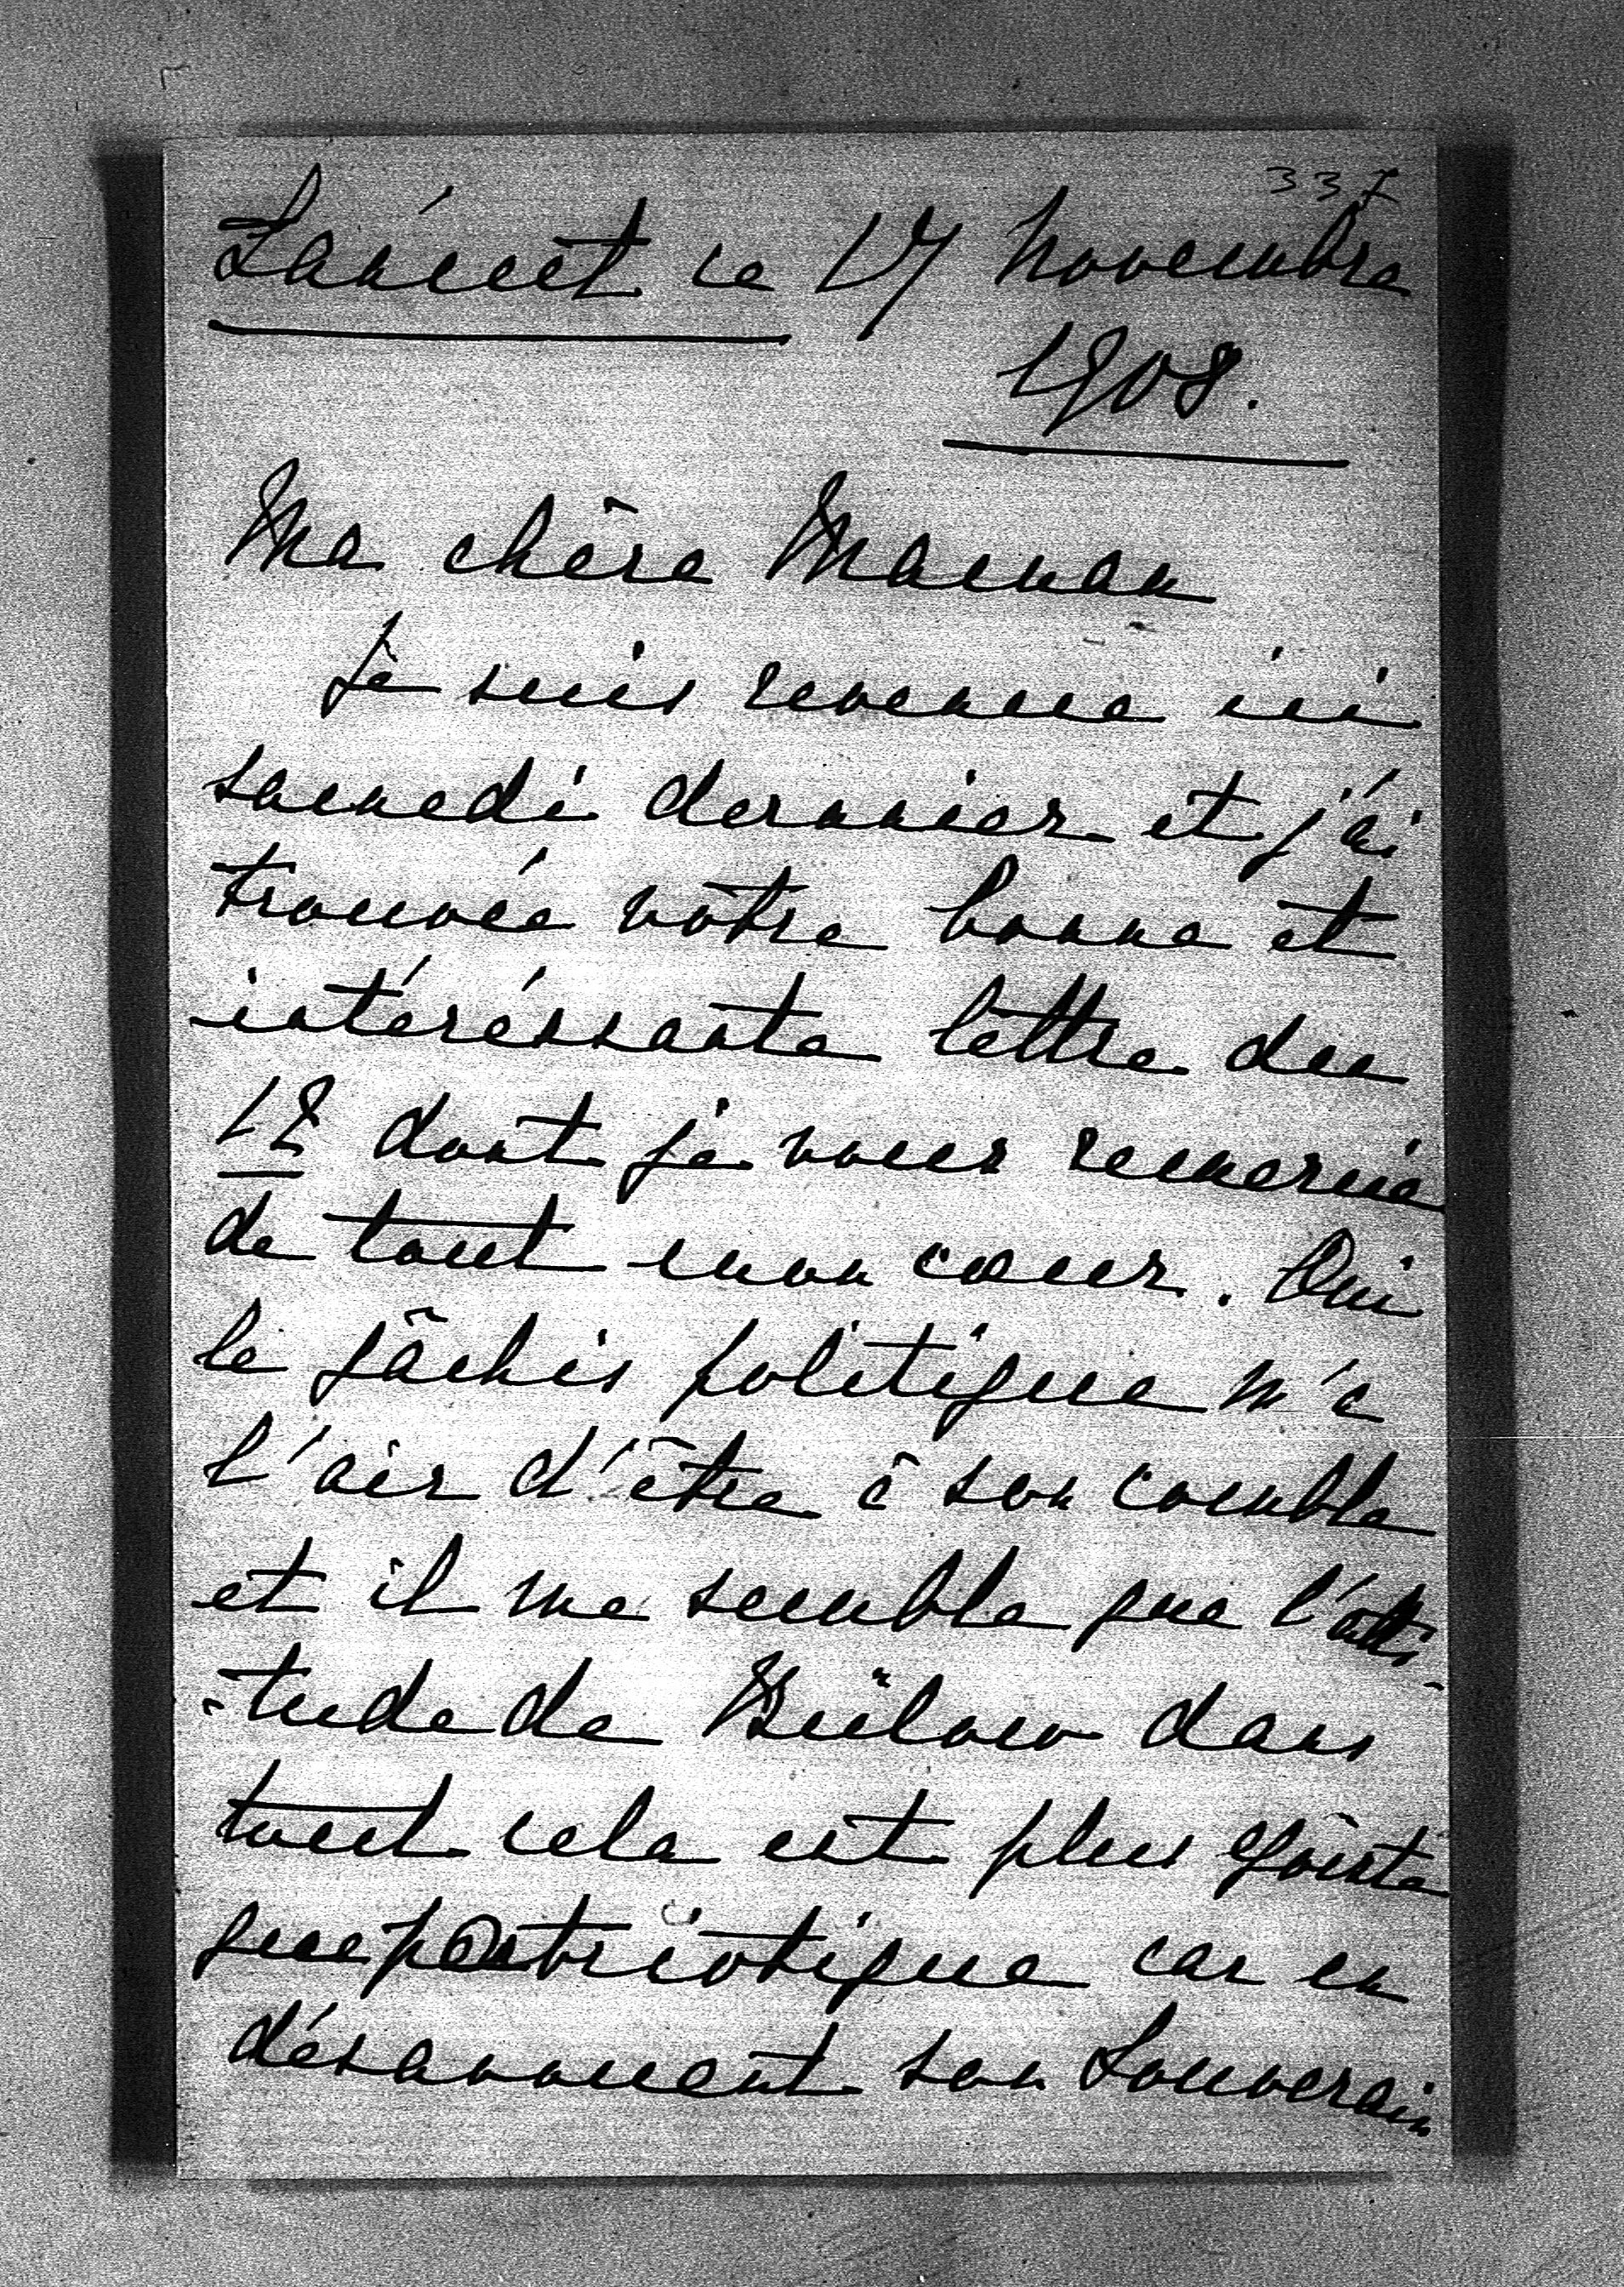 337
Lancut ce 17 Novembre
1908.
Ma chère Maman
Je suis revenue ici
samedi dernier et j'ai
trouvée vôtre bonne et
intéréssante lettre du
12 dont je vous remercie
de tout mon cœur. Oui
le gâchis politique m'a
l'air d'être à son comble
et il me semble que l'atti-
-tude de Bülow dans
tout cela est plus egoïste
que patriotique car en
désavouent son Souverain